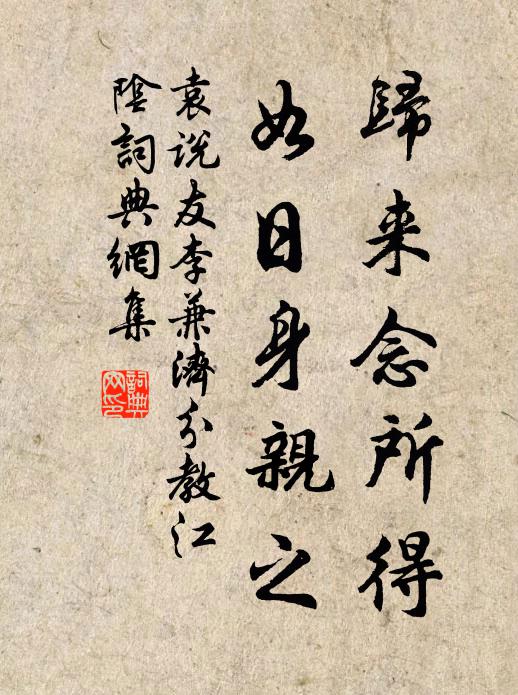 歸来念所得
如日身親之
袁说友李兼濟分教江
陰詞典網集
詞典
网印